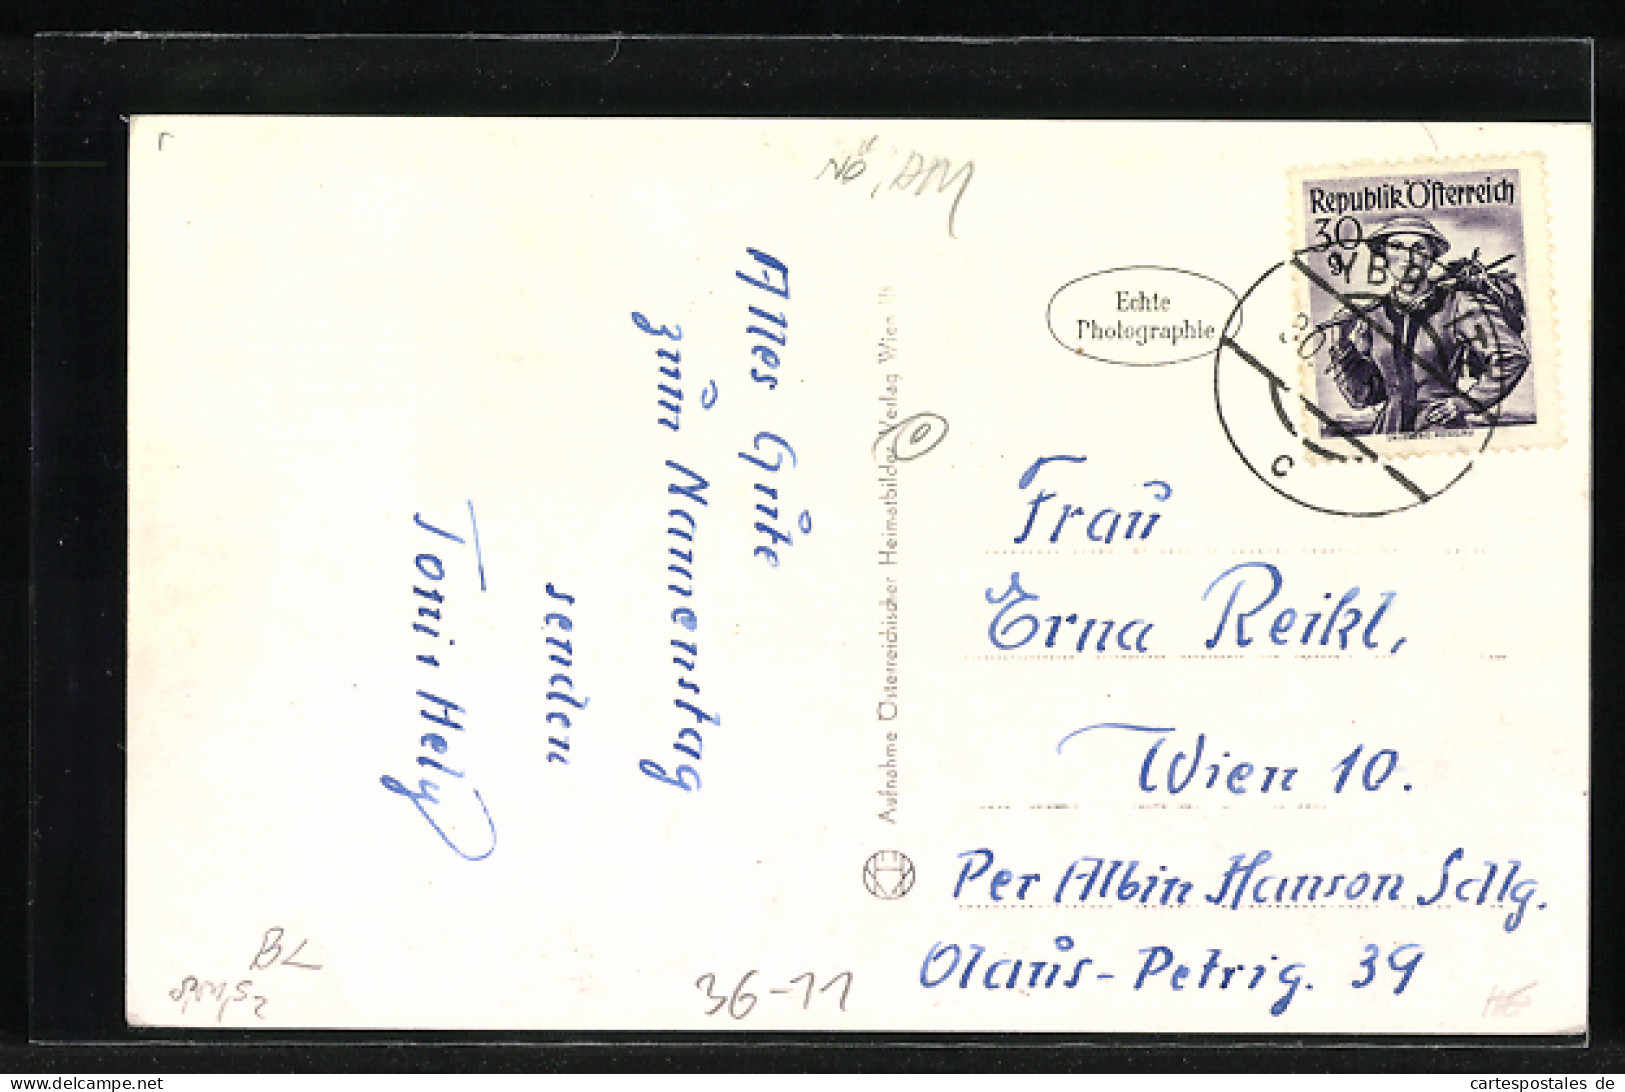 Nö, AM
Alles Gute
zum Namenstag
senden
Toni, Hely
Aufnahme Österreichischer Heimatbilder Verlag Wien
Echte
Photographie
Republik Österreich
30
YBB
c
Frau
Erna Reikl,
Wien 10.
Per Albin Hanson Sdlg.
Olaus-Petrig. 39
BL
36-11
cartespostales de